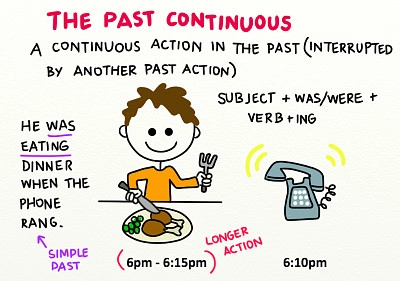 THE PAST CONTINUOUS
A CONTINUOUS ACTION IN THE PAST (INTERRUPTED
BY ANOTHER PAST ACTION)
SUBJECT + WAS/WERE +
VERB + ING
HE WAS
EATING
DINNER
WHEN THE
PHONE
RANG.
SIMPLE
PAST
(6pm - 6:15pm)
LONGER
ACTION
6:10pm